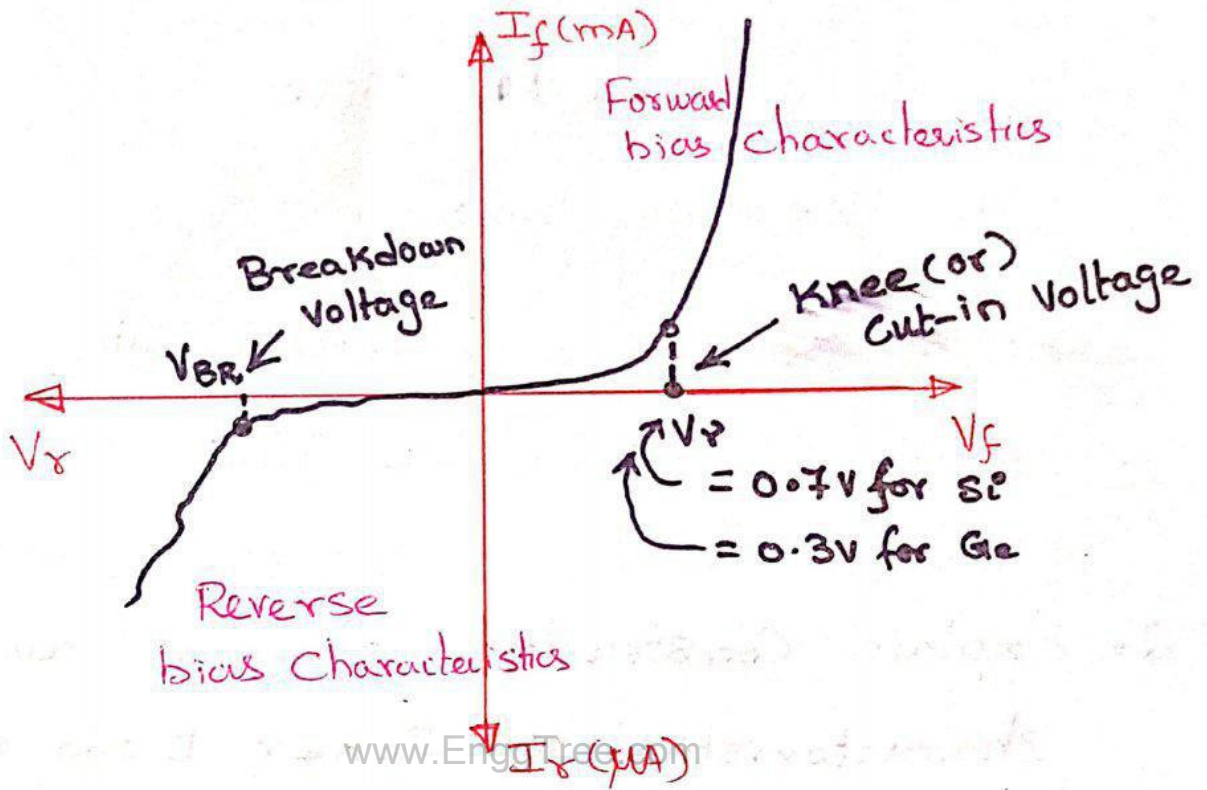 If (mA)
Forward
bias characteristics
Breakdown
voltage
Knee (or)
cut-in voltage
VBR
Vr
Vγ
Vf
= 0.7V for Si
= 0.3V for Ge
Reverse
bias characteristics
www.EnggTree.com
Ir (μA)